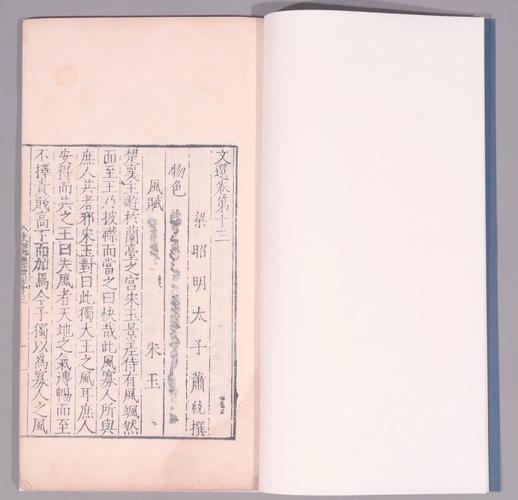 文選卷第十三
梁昭明太子蕭統撰
物色
風賦 宋玉
楚襄王遊於蘭臺之宮宋玉景差侍有風颯然
而至王乃披襟而當之曰快哉此風寡人所與
庶人共者邪宋玉對曰此獨大王之風耳庶人
安得而共之王曰夫風者天地之氣溥暢而至
不擇貴賤高下而加焉今子獨以爲寡人之風